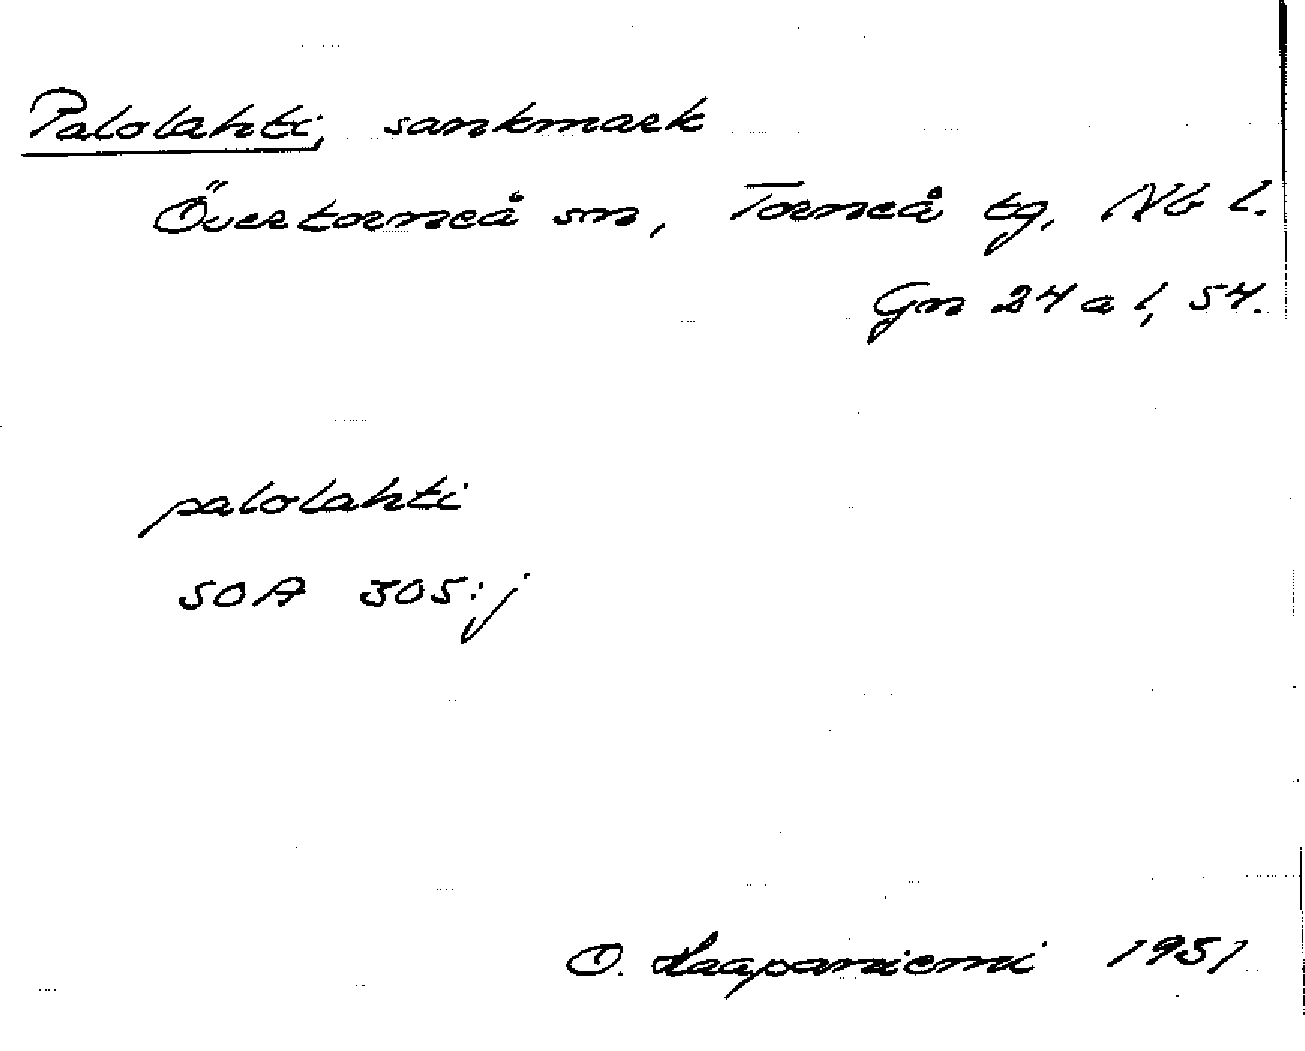 Palolahti, sankmark
Övertorneå sn, Torneå tg, Nb l.
Gn 24 a l, 54.
palolahti
SOA 305:j
O. Haapaniemi 1951